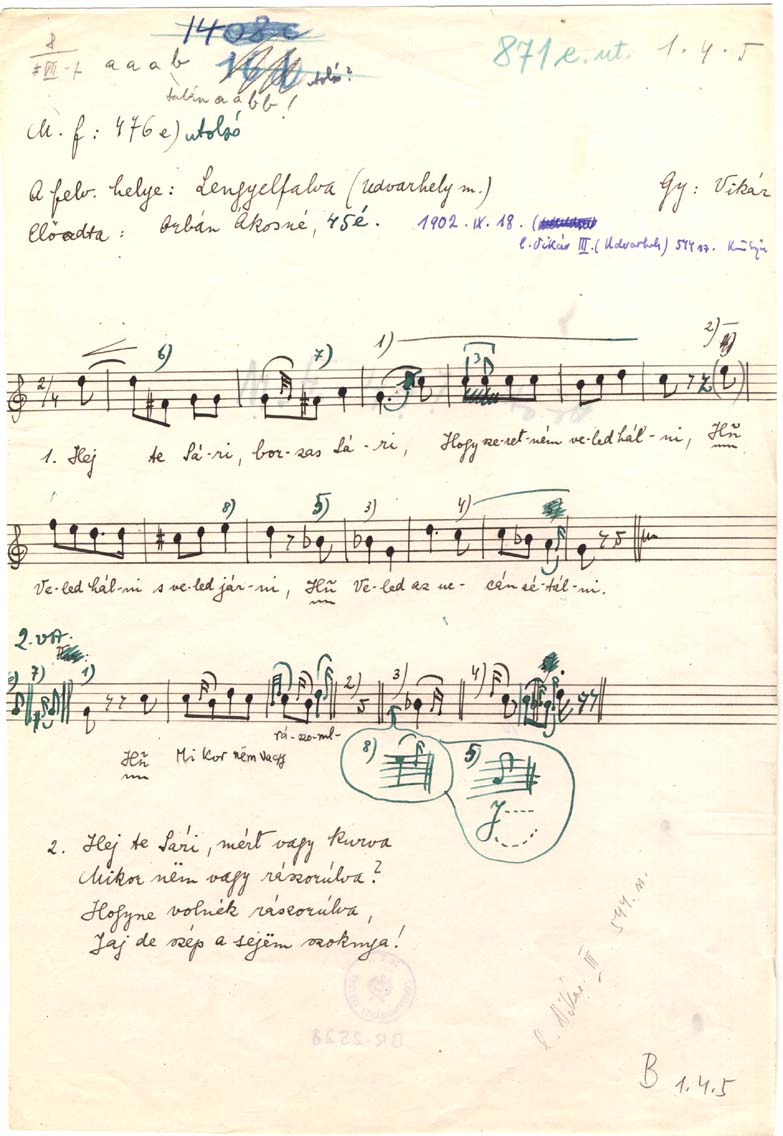 1408c
871 e. ut. 1.4.5
8
VII - 1 a a a b 16 b utolsó?
talán a a b b!
M. f: 476 e) utolsó
A felv. helye: Lengyelfalva (Udvarhely m.) Gy: Vikár
Előadta: Orbán Ákosné, 45é. 1902. IX. 18.
l. Vikár III. (Udvarhely) 544 n.
1) 2)
6) 7) 3
2/4
1. Hej te Sá-ri, bor-zas Sá-ri, Hogy sze-ret-ném ve-led hál-ni, Hŭ
8) 5) 3) 4)
Ve-led hál-ni s ve-led jár-ni, Hŭ Ve-led az uc-cán sé-tál-ni.
2. VA.
7) 1) 2) 3) 4)
rá-szo-rul-
Hŭ Mi kor nëm vagy
8) 5)
2. Hej te Sári, mért vagy kurva
Mikor nëm vagy rászorúlva?
Hogyne volnék rászorúlva,
Jaj de szép a sejëm szoknya!
l. Vikár III 544. n.
BR-2528
B 1.4.5